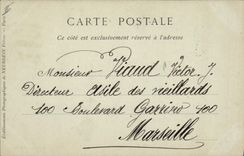 CARTE POSTALE
Ce côté est exclusivement réservé à l'adresse
Monsieur Viaud Victor J.
Directeur Asile des vieillards
100 Boulevard Garrino 100
Marseille
Etablissements Photographiques de NEURDEIN Frères. - Paris